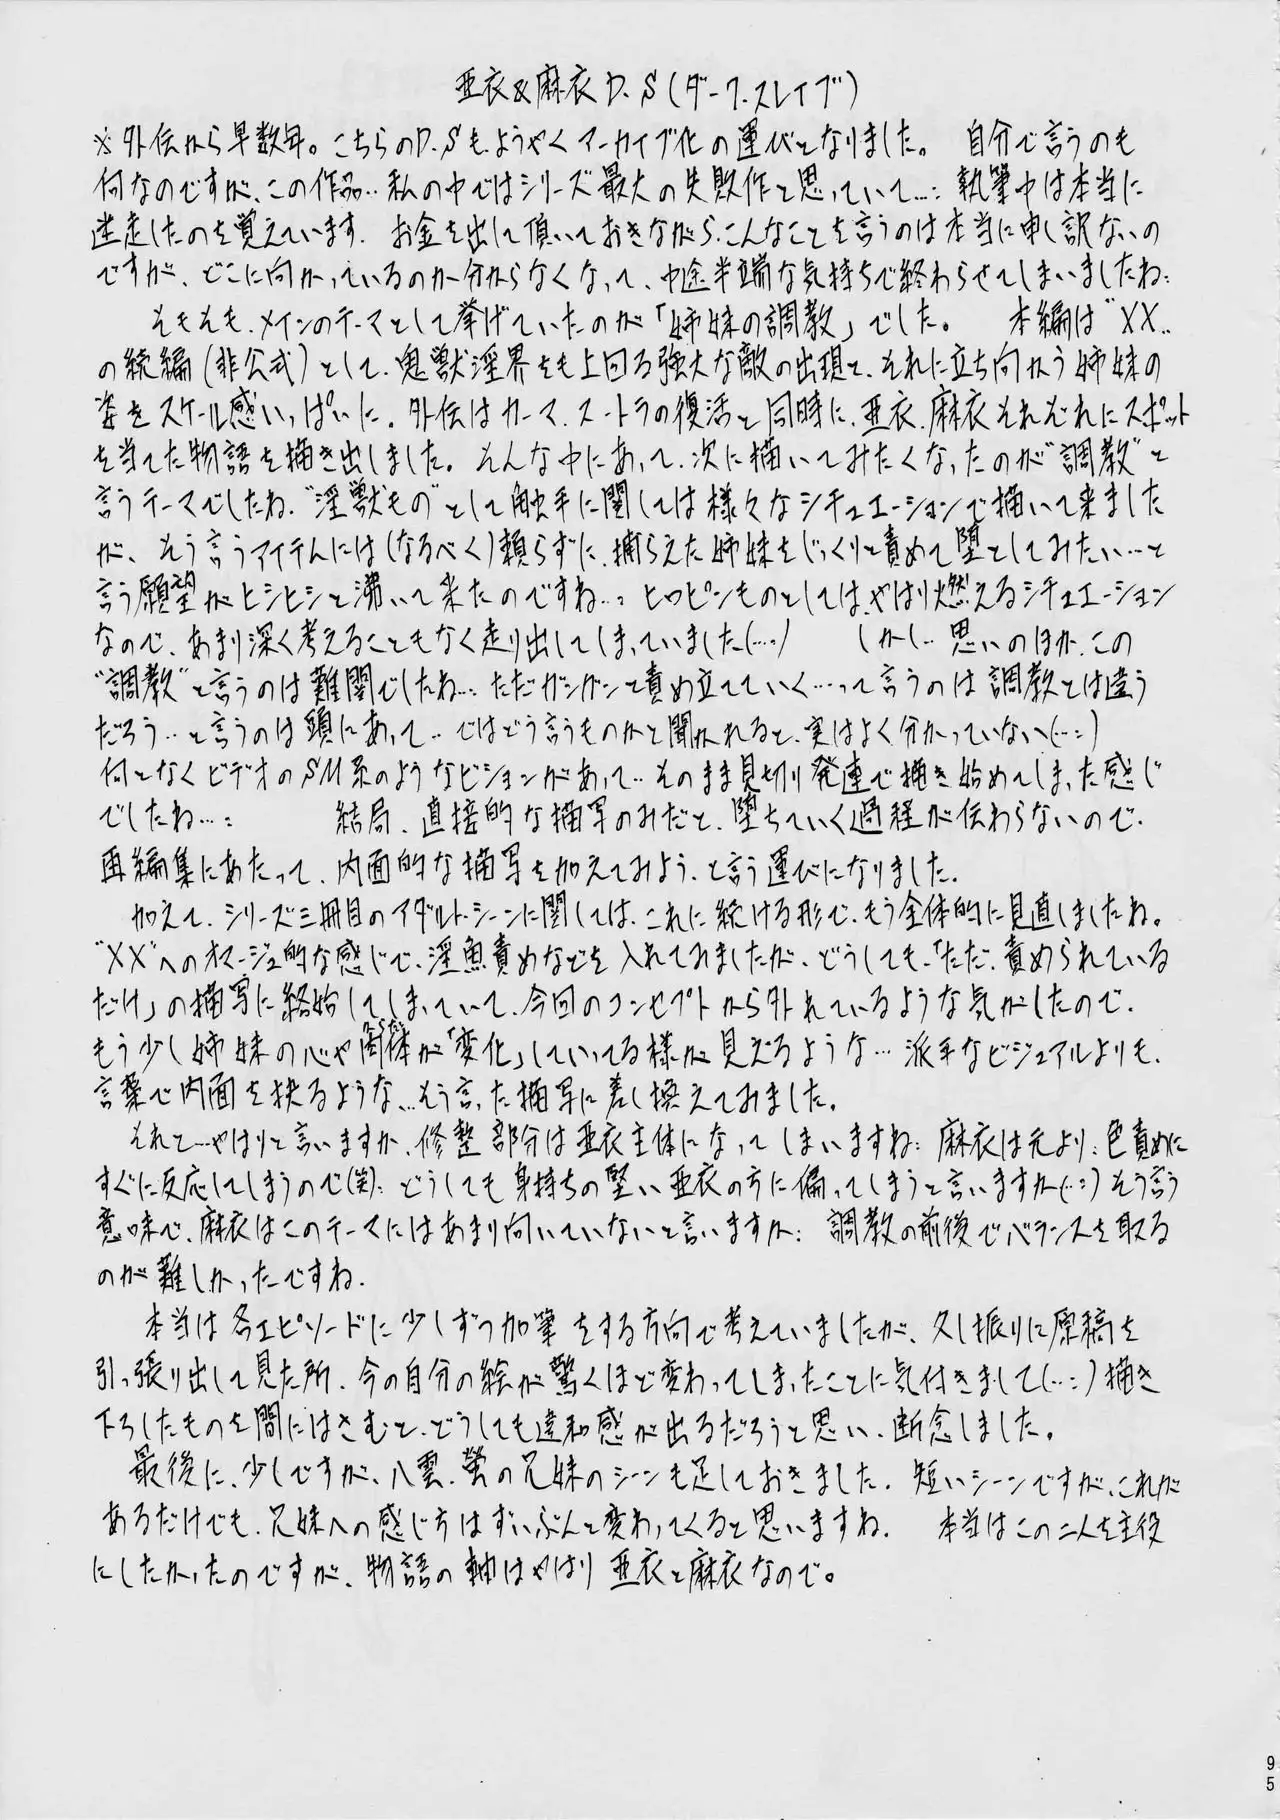 亜衣&麻衣D.S(ダーク.スレイブ)
※外伝から早数年。こちらのD.Sもようやくアーカイブ化の運びとなりました。 自分で言うのも
何なのですが、この作品‥私の中ではシリーズ最大の失敗作と思っていて…: 執筆中は本当に
迷走したのを覚えています. お金を出して頂いておきながら、こんなことを言うのは本当に申し訳ないの
ですが、どこに向かっているのか分からなくなって、中途半端な気持ちで終わらせてしまいましたね:
そもそも、メインのテーマとして挙げていたのが「姉妹の調教」でした。 本編は"XX‥
の続編(非公式)として、鬼獣淫界をも上回る強大な敵の出現と、それに立ち向かう姉妹の
姿をスケール感いっぱいに。外伝はカーマ.スートラの復活と同時に、亜衣.麻衣それぞれにスポット
を当てた物語を描き出しました。そんな中にあって、次に描いてみたくなったのが"調教"と
言うテーマでしたね."淫獣もの"として触手に関しては様々なシチュエーションで描いて来ました
が、そう言うアイテムには(なるべく)頼らずに、捕らえた姉妹をじっくりと責めて堕としてみたい…と
言う願望がヒシヒシと沸いて来たのですね…: ヒロピンものとしては、やはり燃えるシチュエーション
なので、あまり深く考えることもなく走り出してしまっていました(…:) しかし‥思いのほか、この
"調教"と言うのは難関でしたね…: ただガンガンと責め立てていく…って言うのは調教とは違う
だろう‥と言うのは頭にあって‥ではどう言うものかと聞かれると、実はよく分かっていない(…:)
何となくビデオのSM系のようなビジョンがあって‥そのまま見切り発進で描き始めてしまった感じ
でしたね…: 結局、直接的な描写のみだと、堕ちていく過程が伝わらないので、
再編集にあたって、内面的な描写を加えてみよう、と言う運びになりました.
加えて、シリーズ三冊目のアダルト.シーンに関しては、これに続ける形で、もう全体的に見直しましたね。
"XX"へのオマージュ的な感じで、淫魚責めなどを入れてみましたが、どうしても、「ただ、責められている
だけ」の描写に終始してしまっていて、今回のコンセプトから外れているような気がしたので、
もう少し姉妹の心や体が「変化」していってる様が見えるような… 派手なビジュアルよりも、
言葉で内面を抉るような…そう言った描写に差し換えてみました。
それと…やはりと言いますか、修整部分は亜衣主体になってしまいますね: 麻衣は元より:色責めに
すぐに反応してしまうので(笑): どうしても身持ちの堅い亜衣の方に偏ってしまうと言いますか(…:)そう言う
意味で、麻衣はこのテーマにはあまり向いていないと言いますか: 調教の前後でバランスを取る
のが難しかったですね.
本当は各エピソードに少しずつ加筆をする方向で考えていましたが、久し振りに原稿を
引っ張り出して見た所、今の自分の絵が驚くほど変わってしまったことに気付きまして(…:)描き
下ろしたものを間にはさむと、どうしても違和感が出るだろうと思い、断念しました。
最後に、少しですが、八雲.蛍の兄妹のシーンも足しておきました. 短いシーンですが、これが
あるだけでも、兄妹への感じ方はずいぶんと変わってくると思いますね. 本当はこの二人を主役
にしたかったのですが、物語の軸はやはり亜衣と麻衣なので。
95